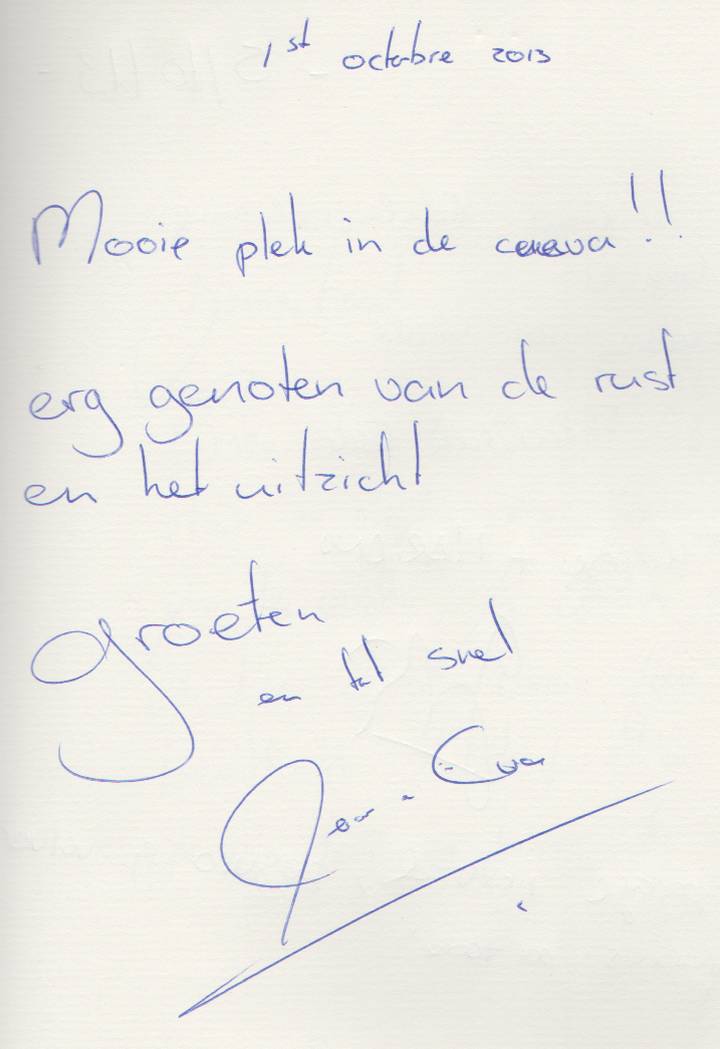 1st octobre 2013
Mooie plek in de
erg genoten van de rust
en het uitzicht
groeten
en tot snel
Eva